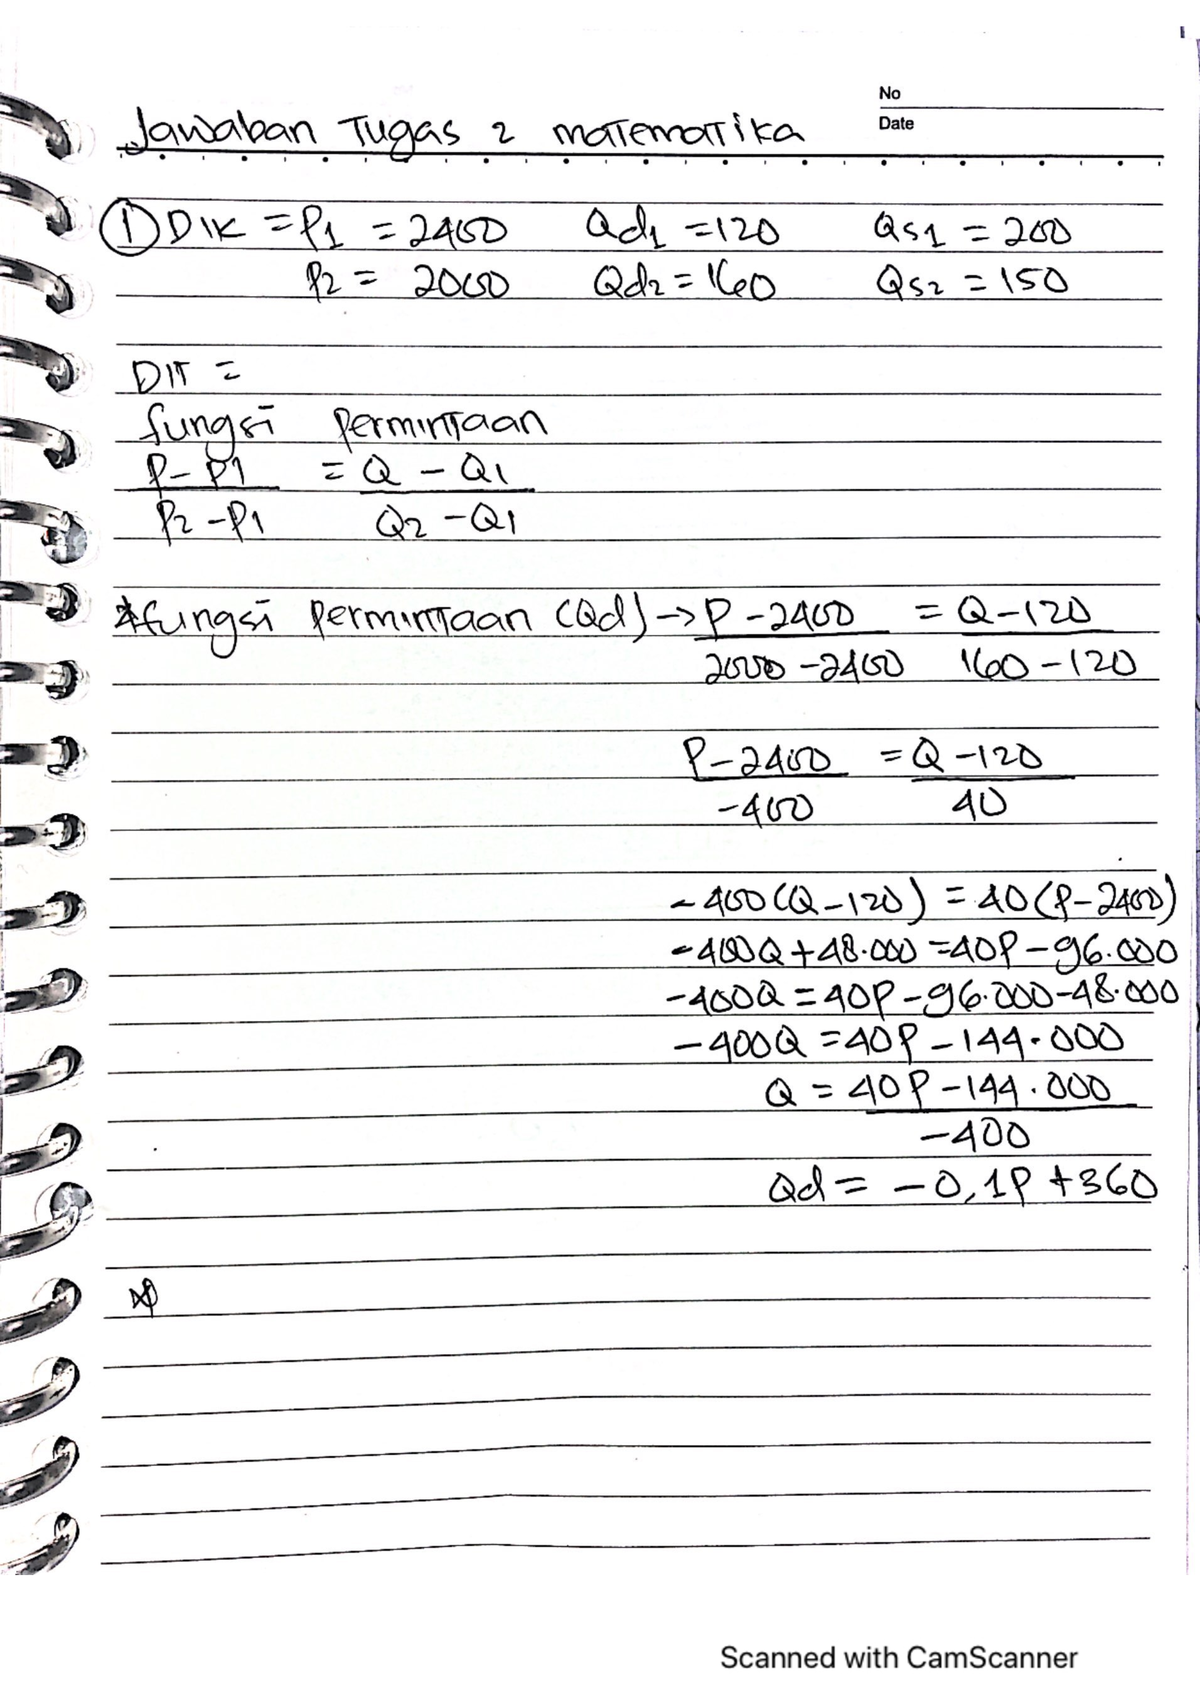 No
Date
Jawaban Tugas 2 matematika
① DIK = P1 = 2400 Qd1 = 120 Qs1 = 200
P2 = 2000 Qd2 = 160 Qs2 = 150
DIT =
fungsi Permintaan
P - P1 = Q - Q1
P2 - P1 Q2 - Q1
*fungsi Permintaan (Qd) → P - 2400 = Q - 120
2000 - 2400 160 - 120
P - 2400 = Q - 120
-400 40
-400 (Q - 120) = 40 (P - 2400)
-400Q + 48.000 = 40P - 96.000
-400Q = 40P - 96.000 - 48.000
-400Q = 40P - 144.000
Q = 40P - 144.000
-400
Qd = -0,1P + 360
Scanned with CamScanner